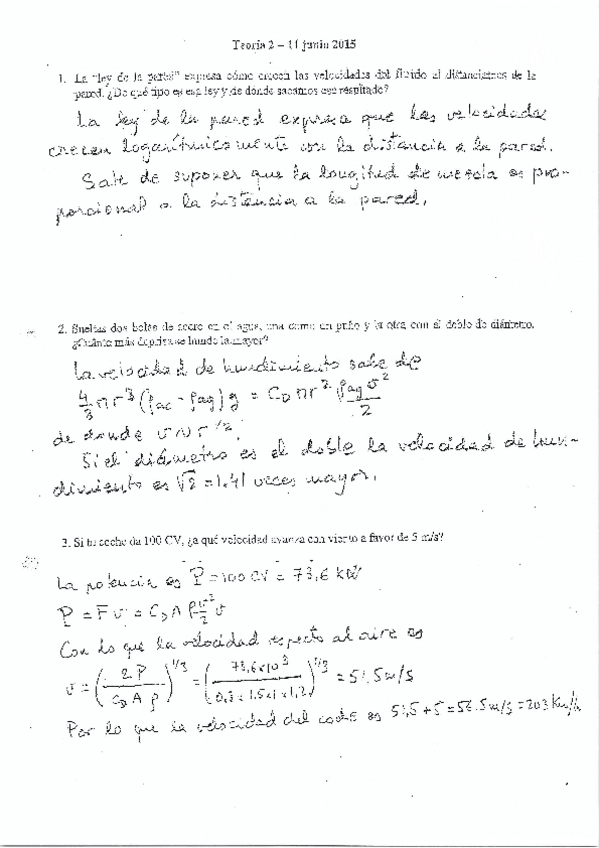 Teoría 2 – 11 junio 2015
1. La "ley de la pared" expresa cómo crecen las velocidades del fluido al distanciarnos de la
pared. ¿De qué tipo es esa ley y de dónde sacamos ese resultado?
La ley de la pared expresa que las velocidades
crecen logarítmicamente con la distancia a la pared.
Sale de suponer que la longitud de mezcla es pro-
porcional a la distancia a la pared.
2. Sueltas dos bolas de acero en el agua, una como un puño y la otra con el doble de diámetro.
¿Cuánto más deprisa se hunde la mayor?
La velocidad de hundimiento sale de
4/3 πr³ (ρac - ρag) g = CD πr² ρag v²/2
de donde v ~ r^1/2.
Si el diámetro es el doble la velocidad de hun-
dimiento es √2 = 1.41 veces mayor.
3. Si tu coche da 100 CV, ¿a qué velocidad avanza con viento a favor de 5 m/s?
La potencia es P = 100 CV = 73,6 kW
P = Fv = CD A ρ v²/2 v
Con lo que la velocidad respecto al aire es
v = (2P / CD A ρ)^1/3 = (73,6×10³ / 0,3×1.5×1×1,2)^1/3 = 51,5 m/s
Por lo que la velocidad del coche es 51,5 + 5 = 56.5 m/s = 203 km/h